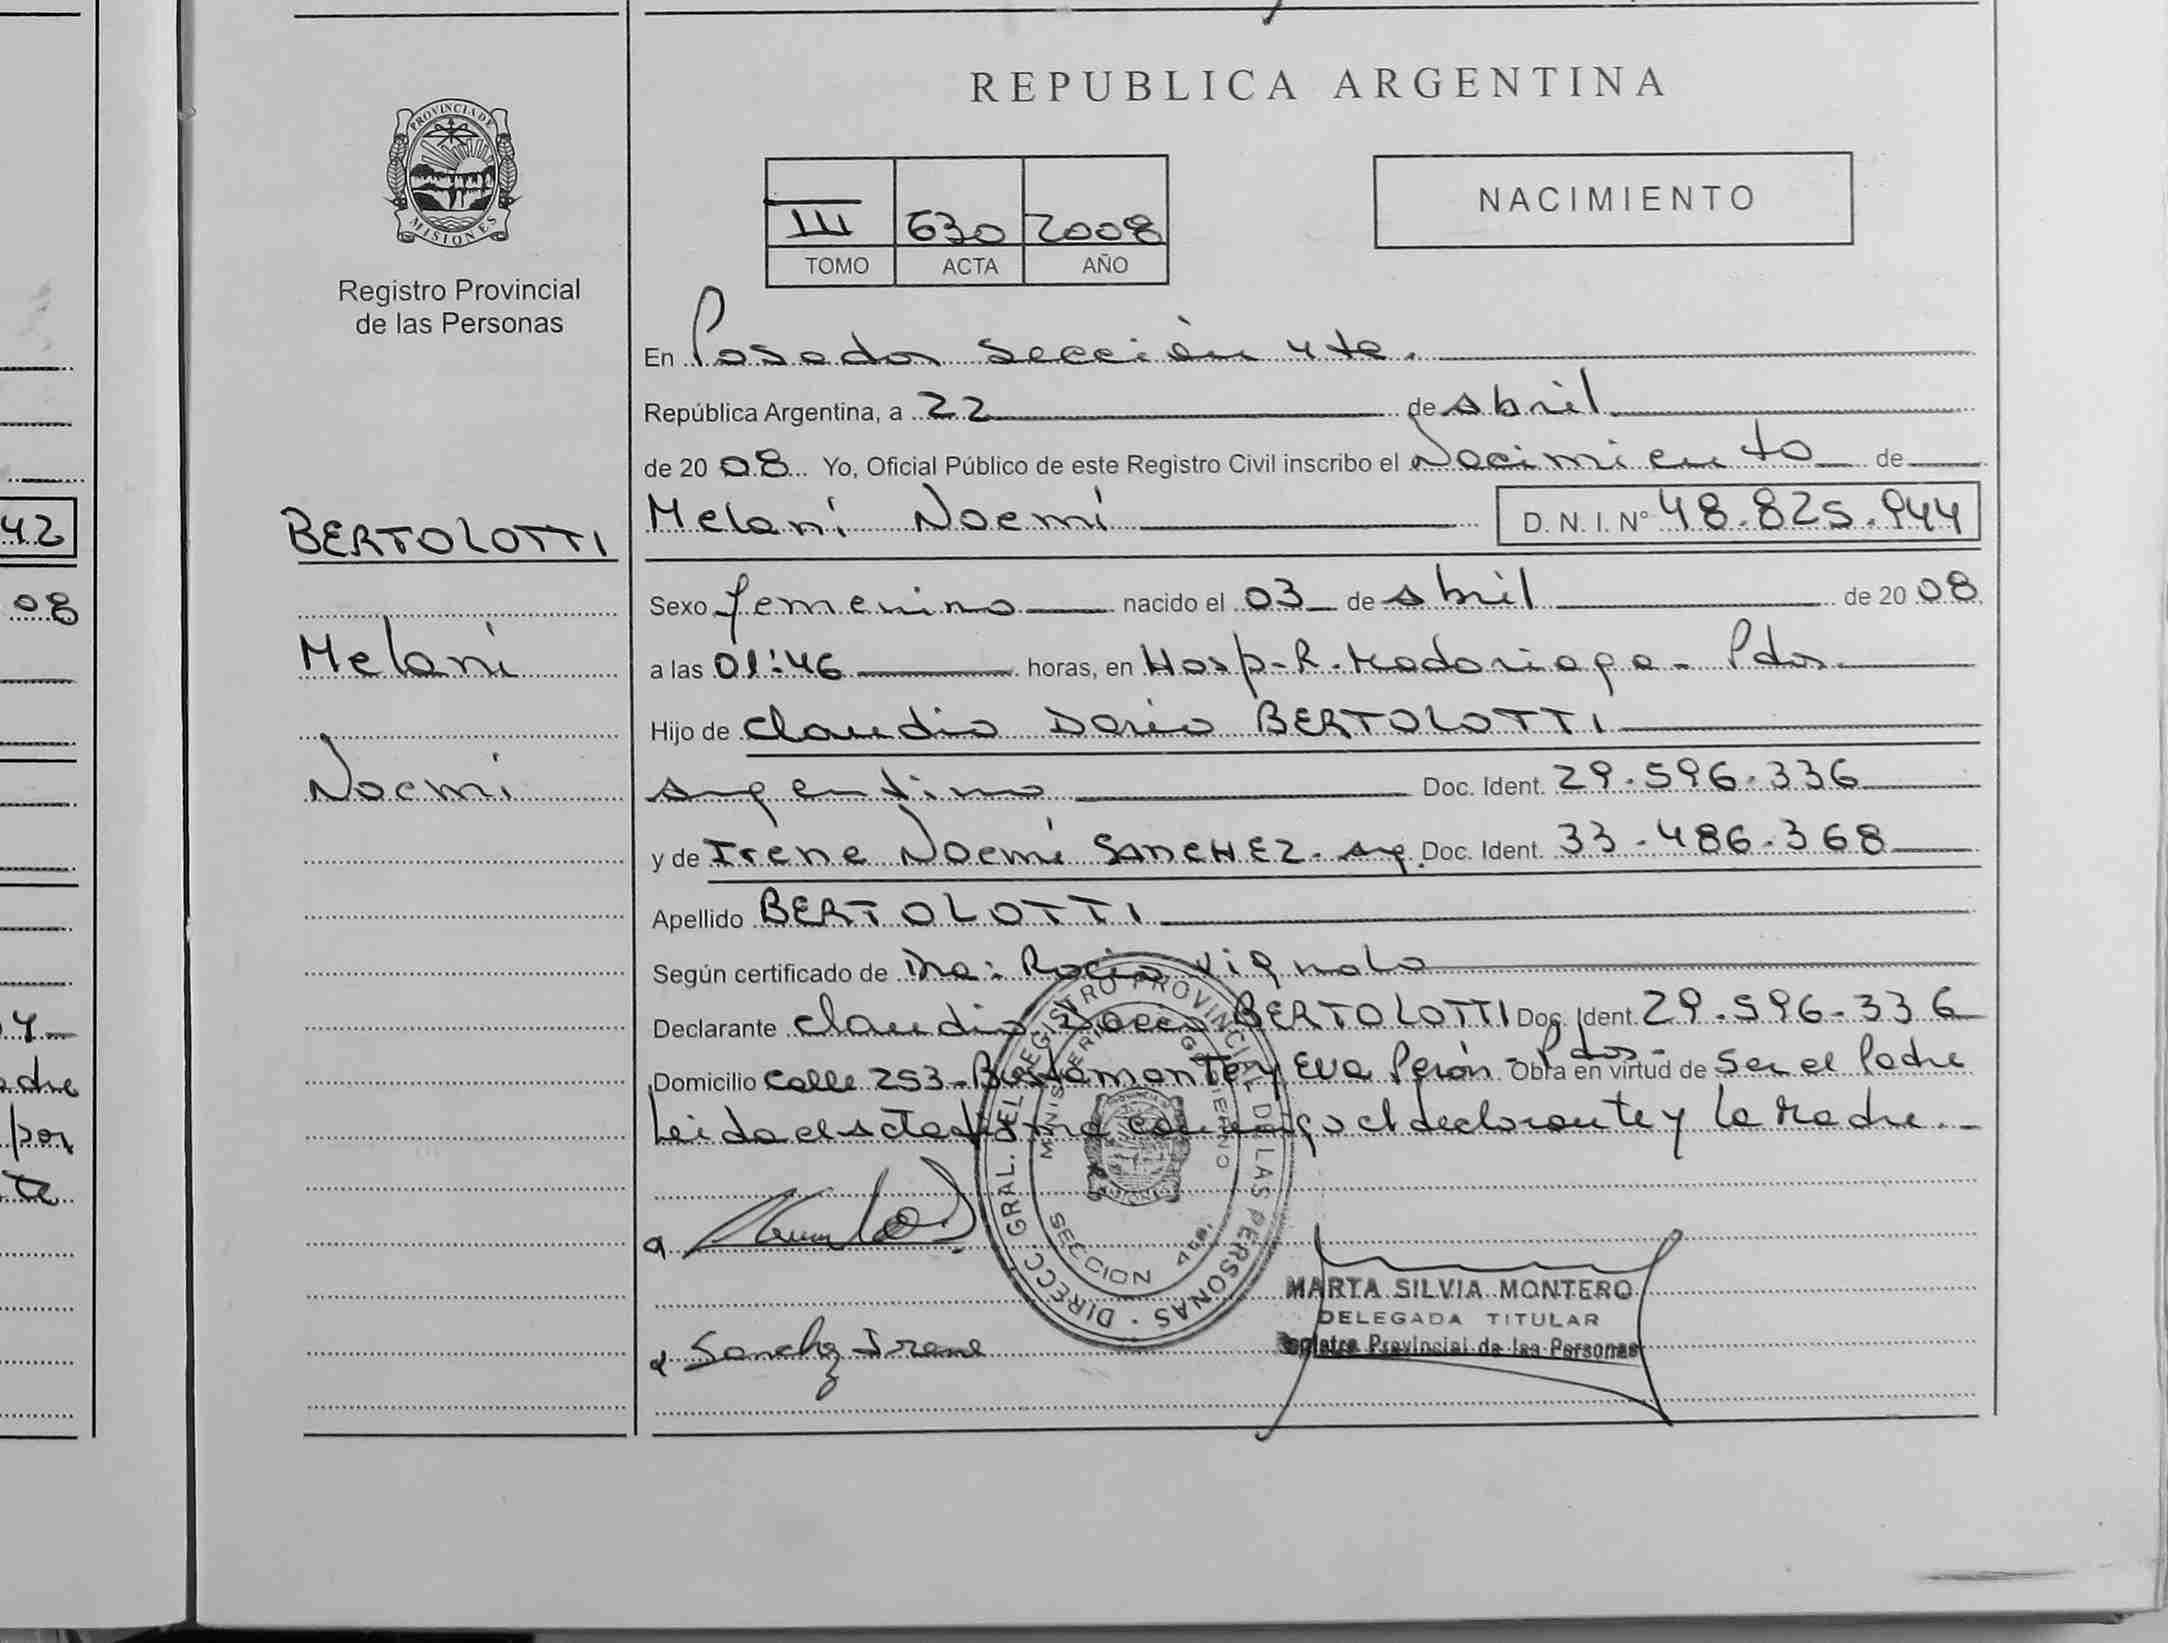 REPUBLICA ARGENTINA
PROVINCIA DE
MISIONES
Registro Provincial
de las Personas
III 630 2008
TOMO ACTA AÑO
NACIMIENTO
En Posadas Sección 4ta.
República Argentina, a 22 de abril
de 2008 Yo, Oficial Público de este Registro Civil inscribo el Nacimiento de
42
BERTOLOTTI
Melani Noemi D. N. I. Nº 48.825.944
08
Sexo femenino nacido el 03 de abril de 2008
Melani
a las 01:46 horas, en Hosp. R. Madariaga - Pdas.
Hijo de Claudio Dario BERTOLOTTI
Noemi
argentino Doc. Ident. 29.596.336
y de Irene Noemí SANCHEZ. arg. Doc. Ident. 33.486.368
Apellido BERTOLOTTI
Según certificado de Dra: Rocio Vignolo
Declarante Claudio Dario BERTOLOTTI Doc. Ident. 29.596.336
Domicilio Calle 253 - Bustamante y Eva Perón - Pdas - Obra en virtud de ser el Padre
Leida el acta firma conmigo el declarante y la Madre. -
por
DIRECC. GRAL. DEL REGISTRO PROVINCIAL DE LAS PERSONAS
MINISTERIO GOBIERNO
SECCION 4ta.
MISIONES
MARTA SILVIA MONTERO
DELEGADA TITULAR
Registro Provincial de las Personas
Sanchez Irene